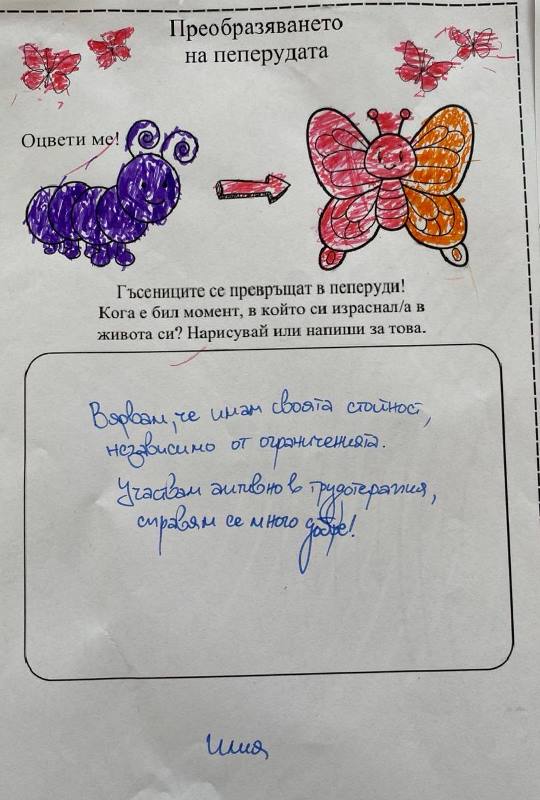 Преобразяването
на пеперудата
Оцвети ме!
Гъсениците се превръщат в пеперуди!
Кога е бил момент, в който си израснал/а в
живота си? Нарисувай или напиши за това.
Вярвам, че имам своята стойност,
независимо от ограниченията.
Участвам активно в трудотерапия,
справям се много добре!